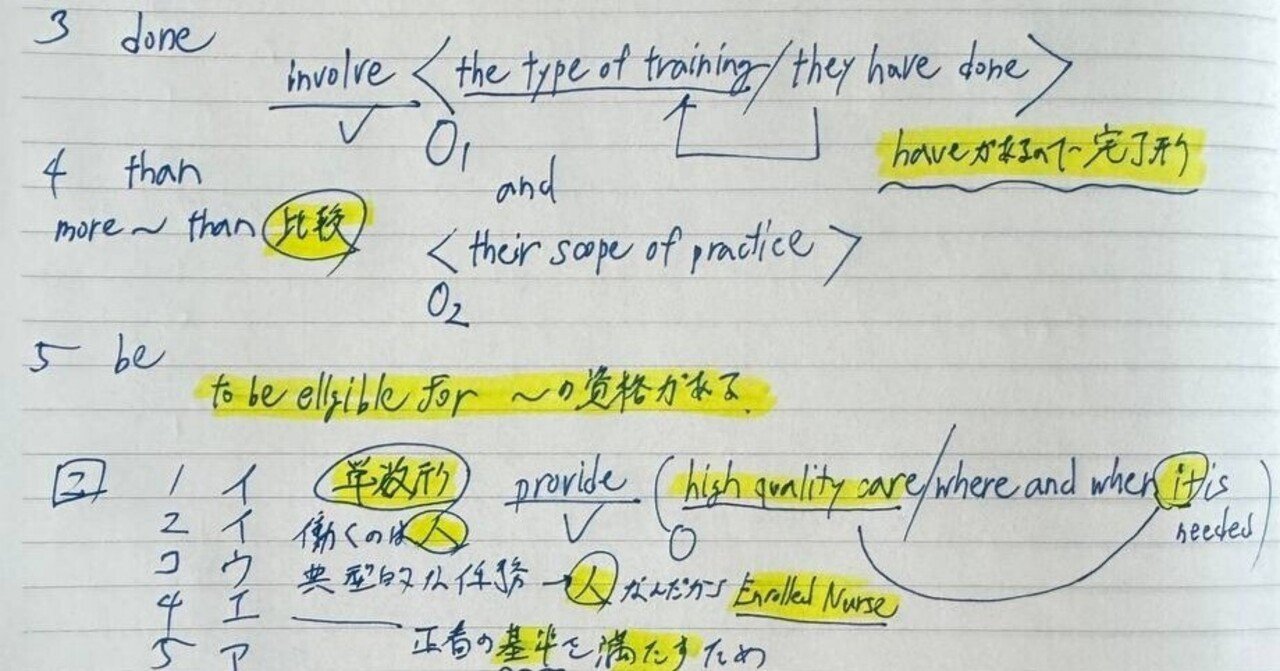 3 done
involve <the type of training/they have done>
V O1
haveがあるので完了形
4 than
and
more~than 比較
<their scope of practice>
O2
5 be
to be ellgible for ~の資格がある
2 1 イ 単数形 provide (high quality care/where and when it is needed)
V O
2 イ 働くのは人
3 ウ 典型的な任務→人なんだから Enrolled Nurse
4 エ
5 ア 基準を満たすため